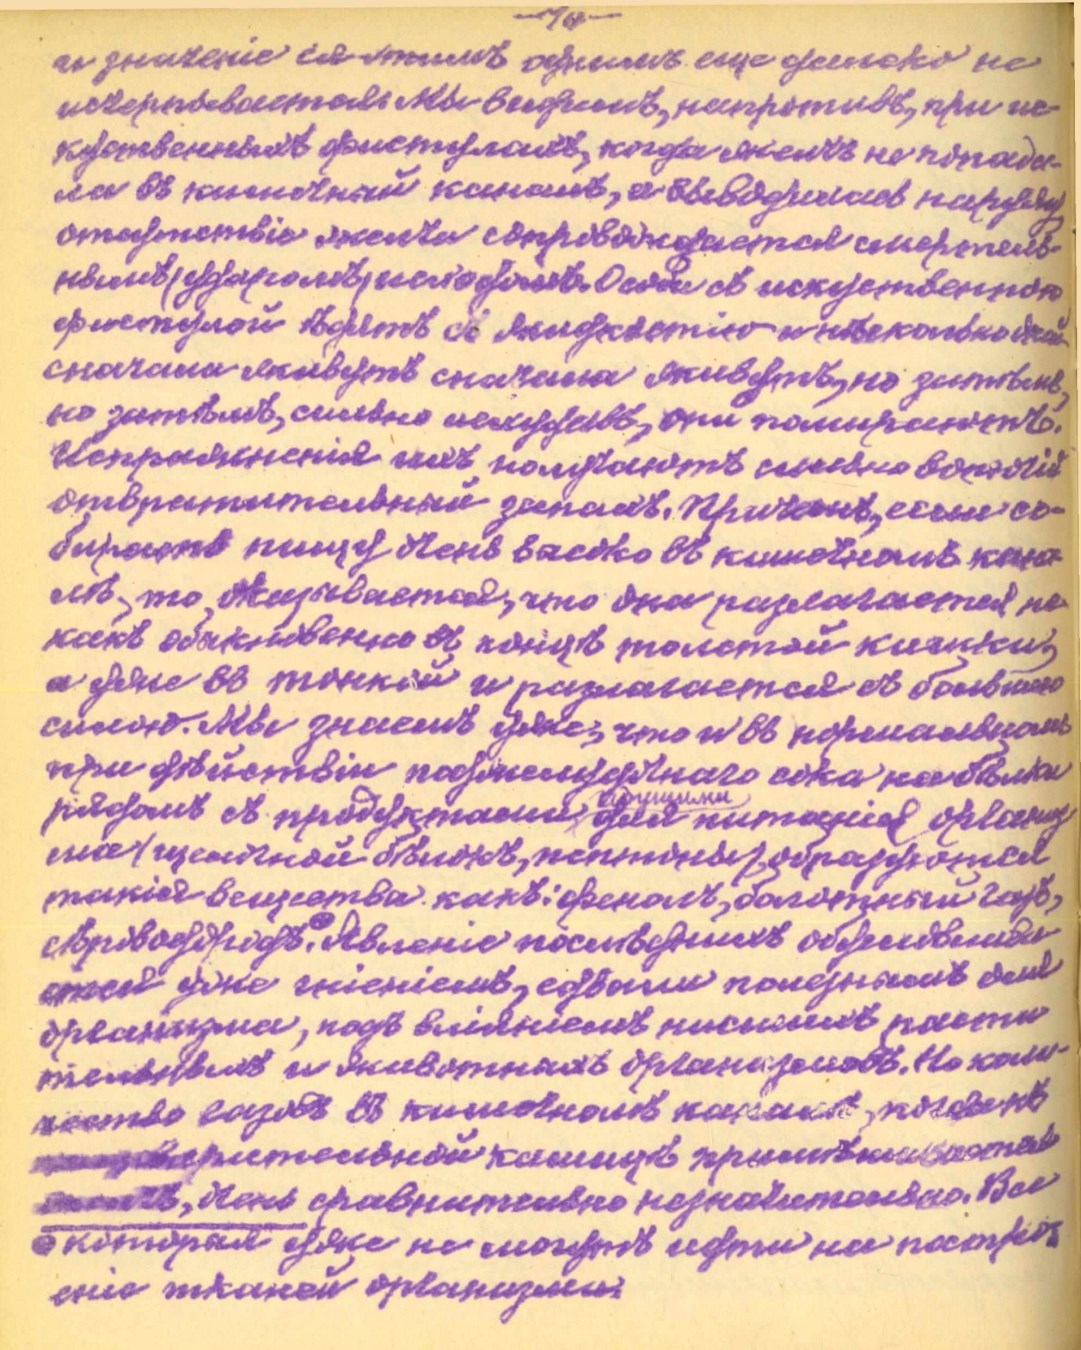 и значеніе ея этимъ однимъ еще далеко не
исчерпывается. Мы видимъ, напротивъ, при ис-
куственныхъ фистулахъ, когда желчь не попада-
ла въ кишечный каналъ, а выводилась наружу,
отсутствіе желчи сопровождается смертель-
нымъ (ударомъ) исходомъ. Особи съ искуственною
фистулой ѣдятъ съ жадностію и нѣсколько дней
сначала живутъ сначала живутъ, но затѣмъ,
но затѣмъ, сильно исхудавъ, они помираютъ.
Испражненія ихъ получаютъ сильно вонючій
отвратительный запахъ. Причемъ, если со-
бирать пищу очень высоко въ кишечномъ кана-
лѣ, то оказывается, что она разлагается не
какъ обыкновенно въ концѣ толстой кишки,
а уже въ тонкой и разлагается съ большою
силою. Мы знаемъ уже, что и въ нормальномъ
при дѣйствіи поджелудочнаго сока на бѣлки
рядомъ съ продуктами, идущими для питанія организ
ма (щелочной бѣлокъ, пептоны), образуются
такія вещества какъ: фенолъ, болотный газъ,
сѣроводородъ. Явленіе послѣднихъ обусловлива
ется уже гніеніемъ, едвали полезнымъ для
организма, подъ вліяніемъ низшихъ расти
тельныхъ и животныхъ организмовъ. Но коли-
чество газовъ въ кишечномъ каналѣ,
кашицѣ примѣшивается
очень сравнительно незначительно. Все
которая уже не могутъ идти на постро
еніе тканей организма.